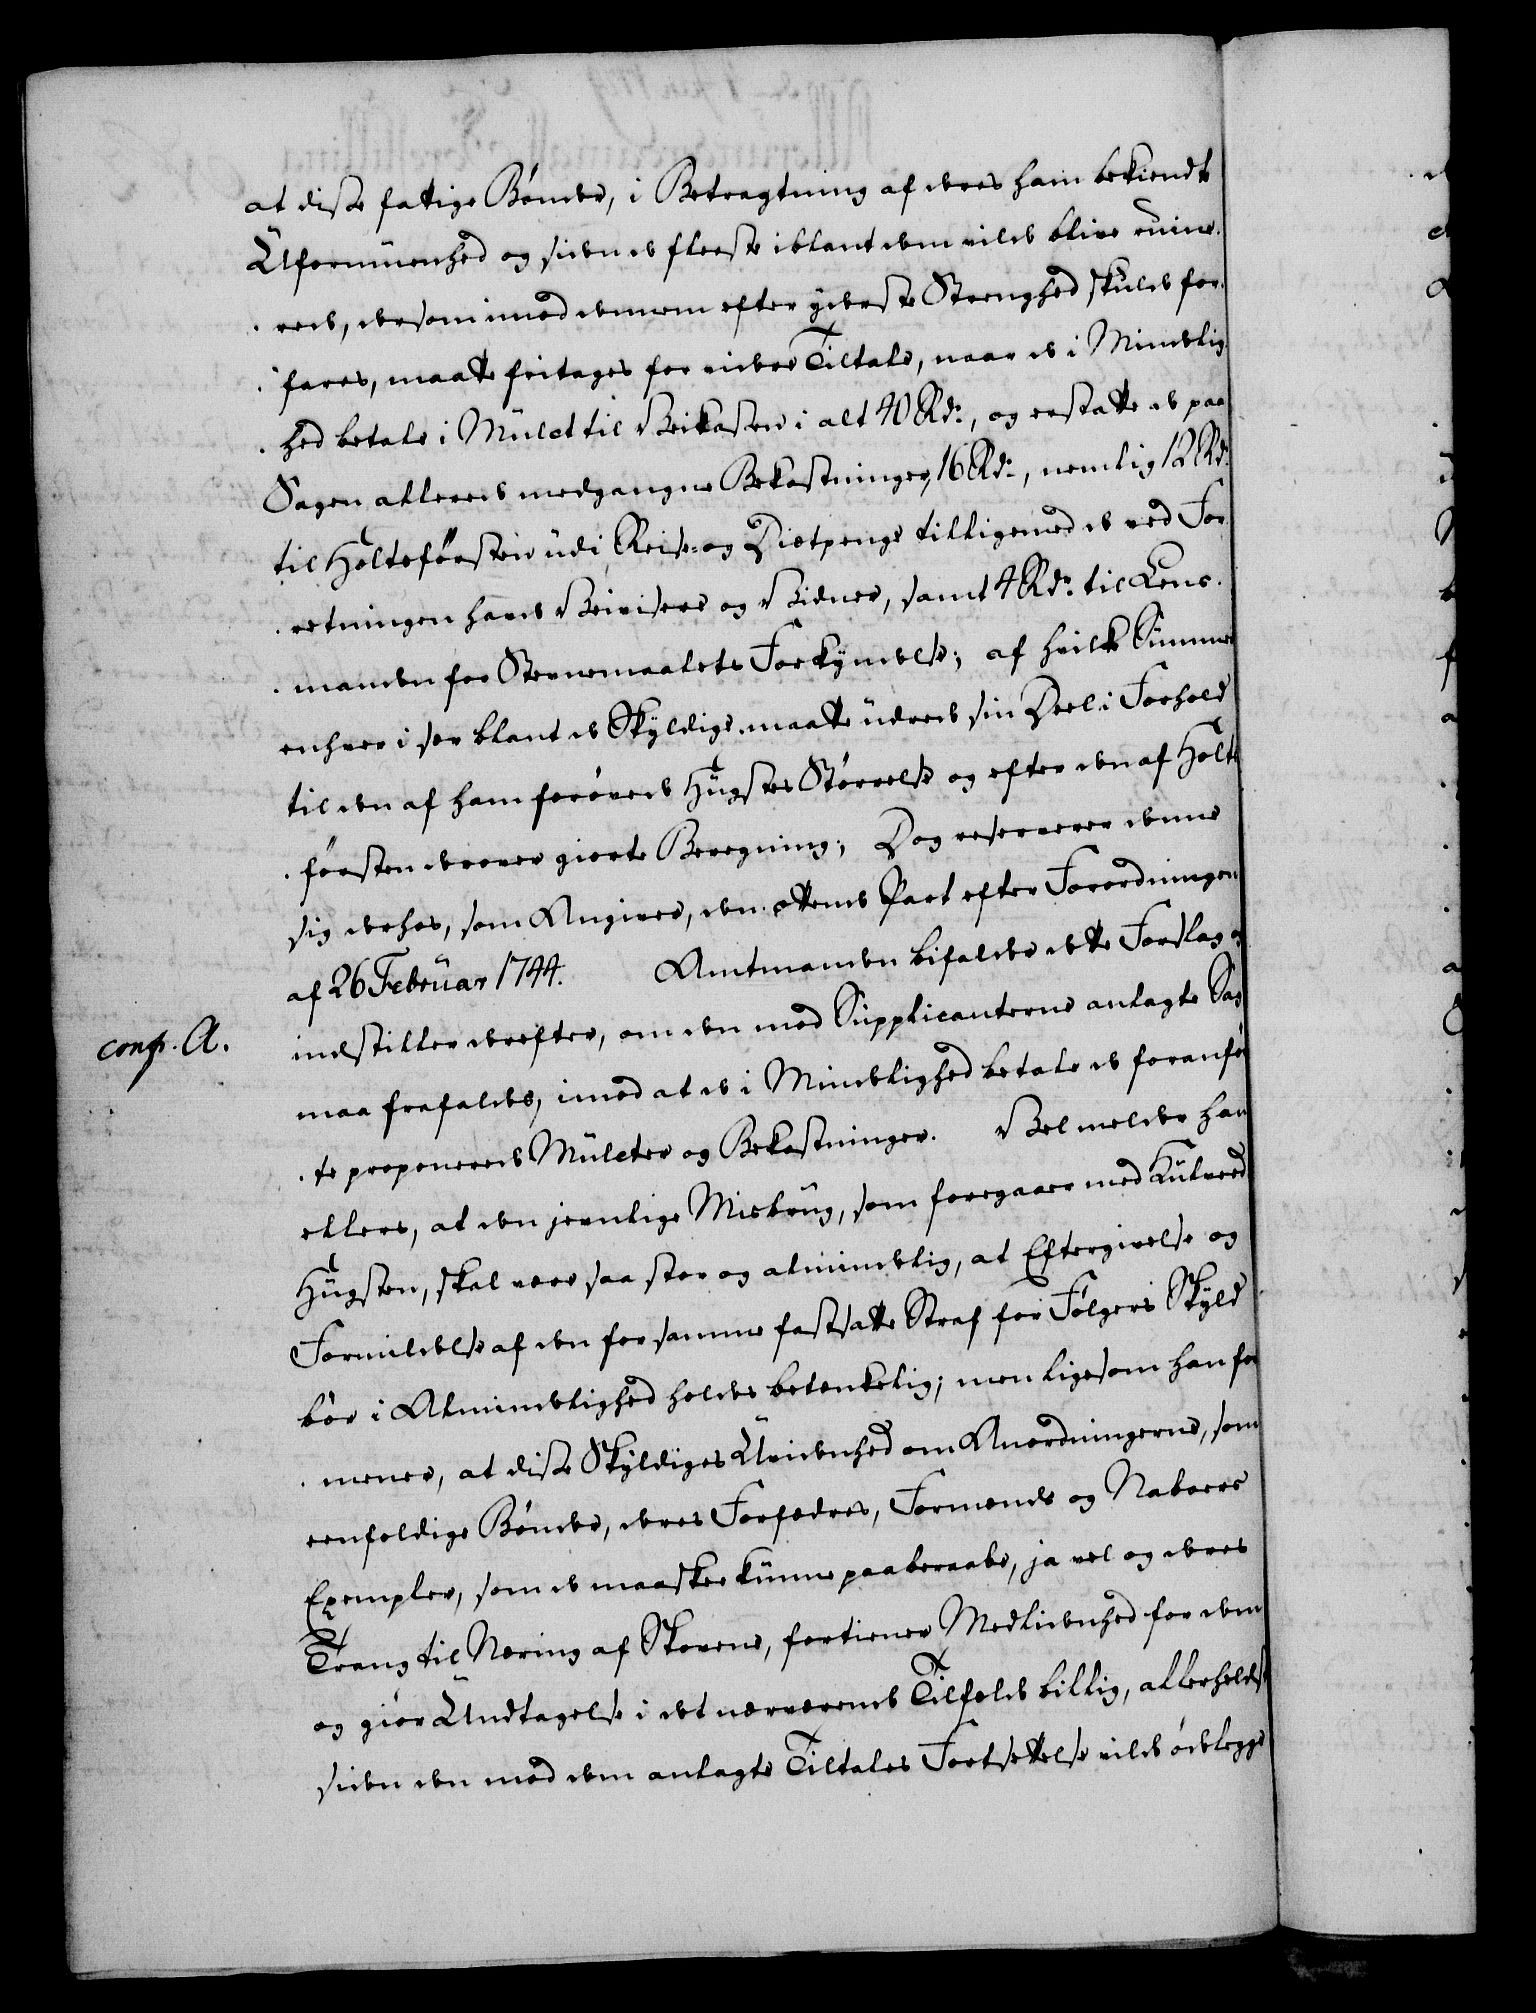 at disse fattige Bönder, i Betragtning af deres ham bekiendte
Uformuenhed og siden de fleeste iblant dem vilde blive ruine-
rede, dersom imod dennem efter yderste Strenghed skulde for-
fares, maatte fritages for videre Tiltale, naar de i Mindelig-
hed betale i Mulct til Veikassen i alt 40 Rd., og erstatte de paa
Sagen allerede medgangne Bekostninger, 16 Rd., nemlig 12 Rd.
til Holtsförsten udi Reise- og Diætpenge tilligemed de ved For-
retningen havde Veivisere og Vidner, samt 4 Rd. til Lens-
manden for Stevnemaalets Forkyndelse; af hvilke Summer
enhver i sær blant de Skyldige maatte udrede sin Deel i Forhold
til den af ham forövede Hugstes Störrelse og efter den af Holts-
försten derover giorte Beregning; Dog reserverer denne
sig derhos, som Angiver, den ottende Part efter Forordningen
af 26 Februar 1744. Amtmanden bifalder dette Forslag og
conf. A.
indstiller derefter, om den mod Supplicanterne anlagte Sag
maa frafaldes, imod at de i Mindelighed betale de foranför-
te proponerede Mulcter og Bekostninger. Vel melder han
ellers, at den jevnlige Misbrug, som foregaaer med Kulveed
Hugsten, skal være saa stor og almindelig, at Eftergivelse og
Formildelse af den for samme fastsatte Straf for Fölgers Skyld
bör i Almindelighed holdes betænkelig; men ligesom han for-
mener, at disse Skyldiges Uvidenhed om Anordningerne, som
eenfoldige Bönder, deres Forfædres, Formænds og Naboers
Exempler, som de maaskee kunne paaberaabe, ja vel og deres
Trang til Næring af Skovene, fortiener Medlidenhed for dem
og giör Undtagelse i det nærværende Tilfælde billig, allerheldst
siden den mod dem anlagte Tiltales Fortsættelse vilde ödelegge